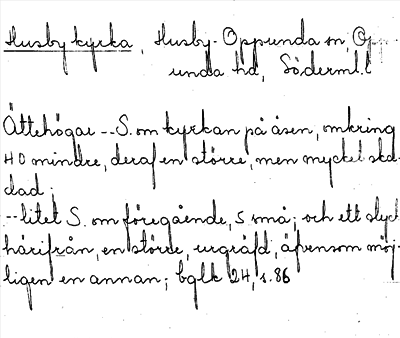 Husby kyrka, Husby-Oppunda sn, Op-
unda hd, Söderml. l
Ättehögar -- S. om kyrkan på åsen, omkring
40 mindre, deraf en större, men mycket ska-
dad;
-- litet S. om föregående, 5 små; och ett stycke
härifrån, en större, urgräfd, äfvensom möj-
ligen en annan; bglk 24, s. 86